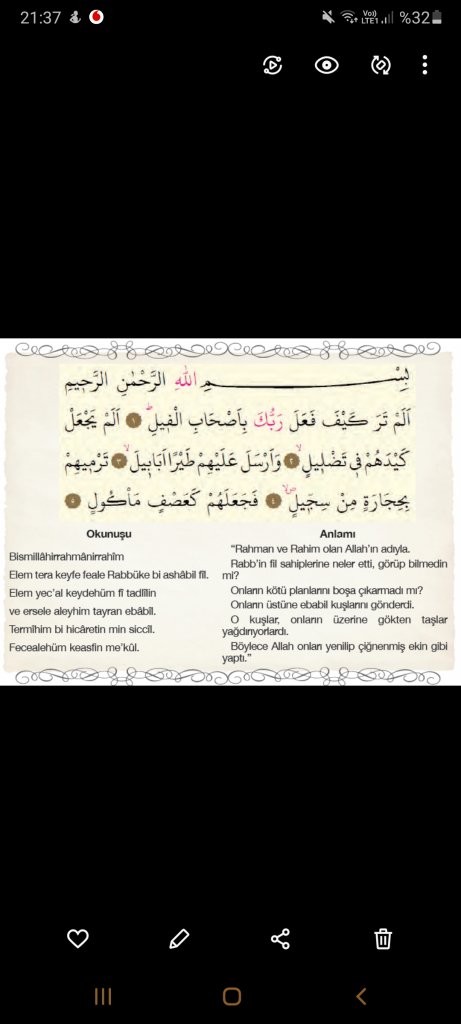 21:37
Vo) LTE1
%32
بِسْمِ اللّٰهِ الرَّحْمٰنِ الرَّح۪يمِ
اَلَمْ تَرَ كَيْفَ فَعَلَ رَبُّكَ بِاَصْحَابِ الْف۪يلِۜ ﴿١﴾ اَلَمْ يَجْعَلْ
كَيْدَهُمْ ف۪ي تَضْل۪يلٍۙ ﴿٢﴾ وَاَرْسَلَ عَلَيْهِمْ طَيْرًا اَبَاب۪يلَۙ ﴿٣﴾ تَرْم۪يهِمْ
بِحِجَارَةٍ مِنْ سِجّ۪يلٍۖۙ ﴿٤﴾ فَجَعَلَهُمْ كَعَصْفٍ مَأْكُولٍ ﴿٥﴾
Okunuşu
Bismillâhirrahmânirrahîm
Elem tera keyfe feale Rabbüke bi ashâbil fîl.
Elem yec'al keydehüm fî tadlîlin
ve ersele aleyhim tayran ebâbîl.
Termîhim bi hicâretin min siccîl.
Fecealehüm keasfin me'kûl.
Anlamı
"Rahman ve Rahim olan Allah'ın adıyla.
Rabb'in fil sahiplerine neler etti, görüp bilmedin
mi?
Onların kötü planlarını boşa çıkarmadı mı?
Onların üstüne ebabil kuşlarını gönderdi.
O kuşlar, onların üzerine gökten taşlar
yağdırıyorlardı.
Böylece Allah onları yenilip çiğnenmiş ekin gibi
yaptı."